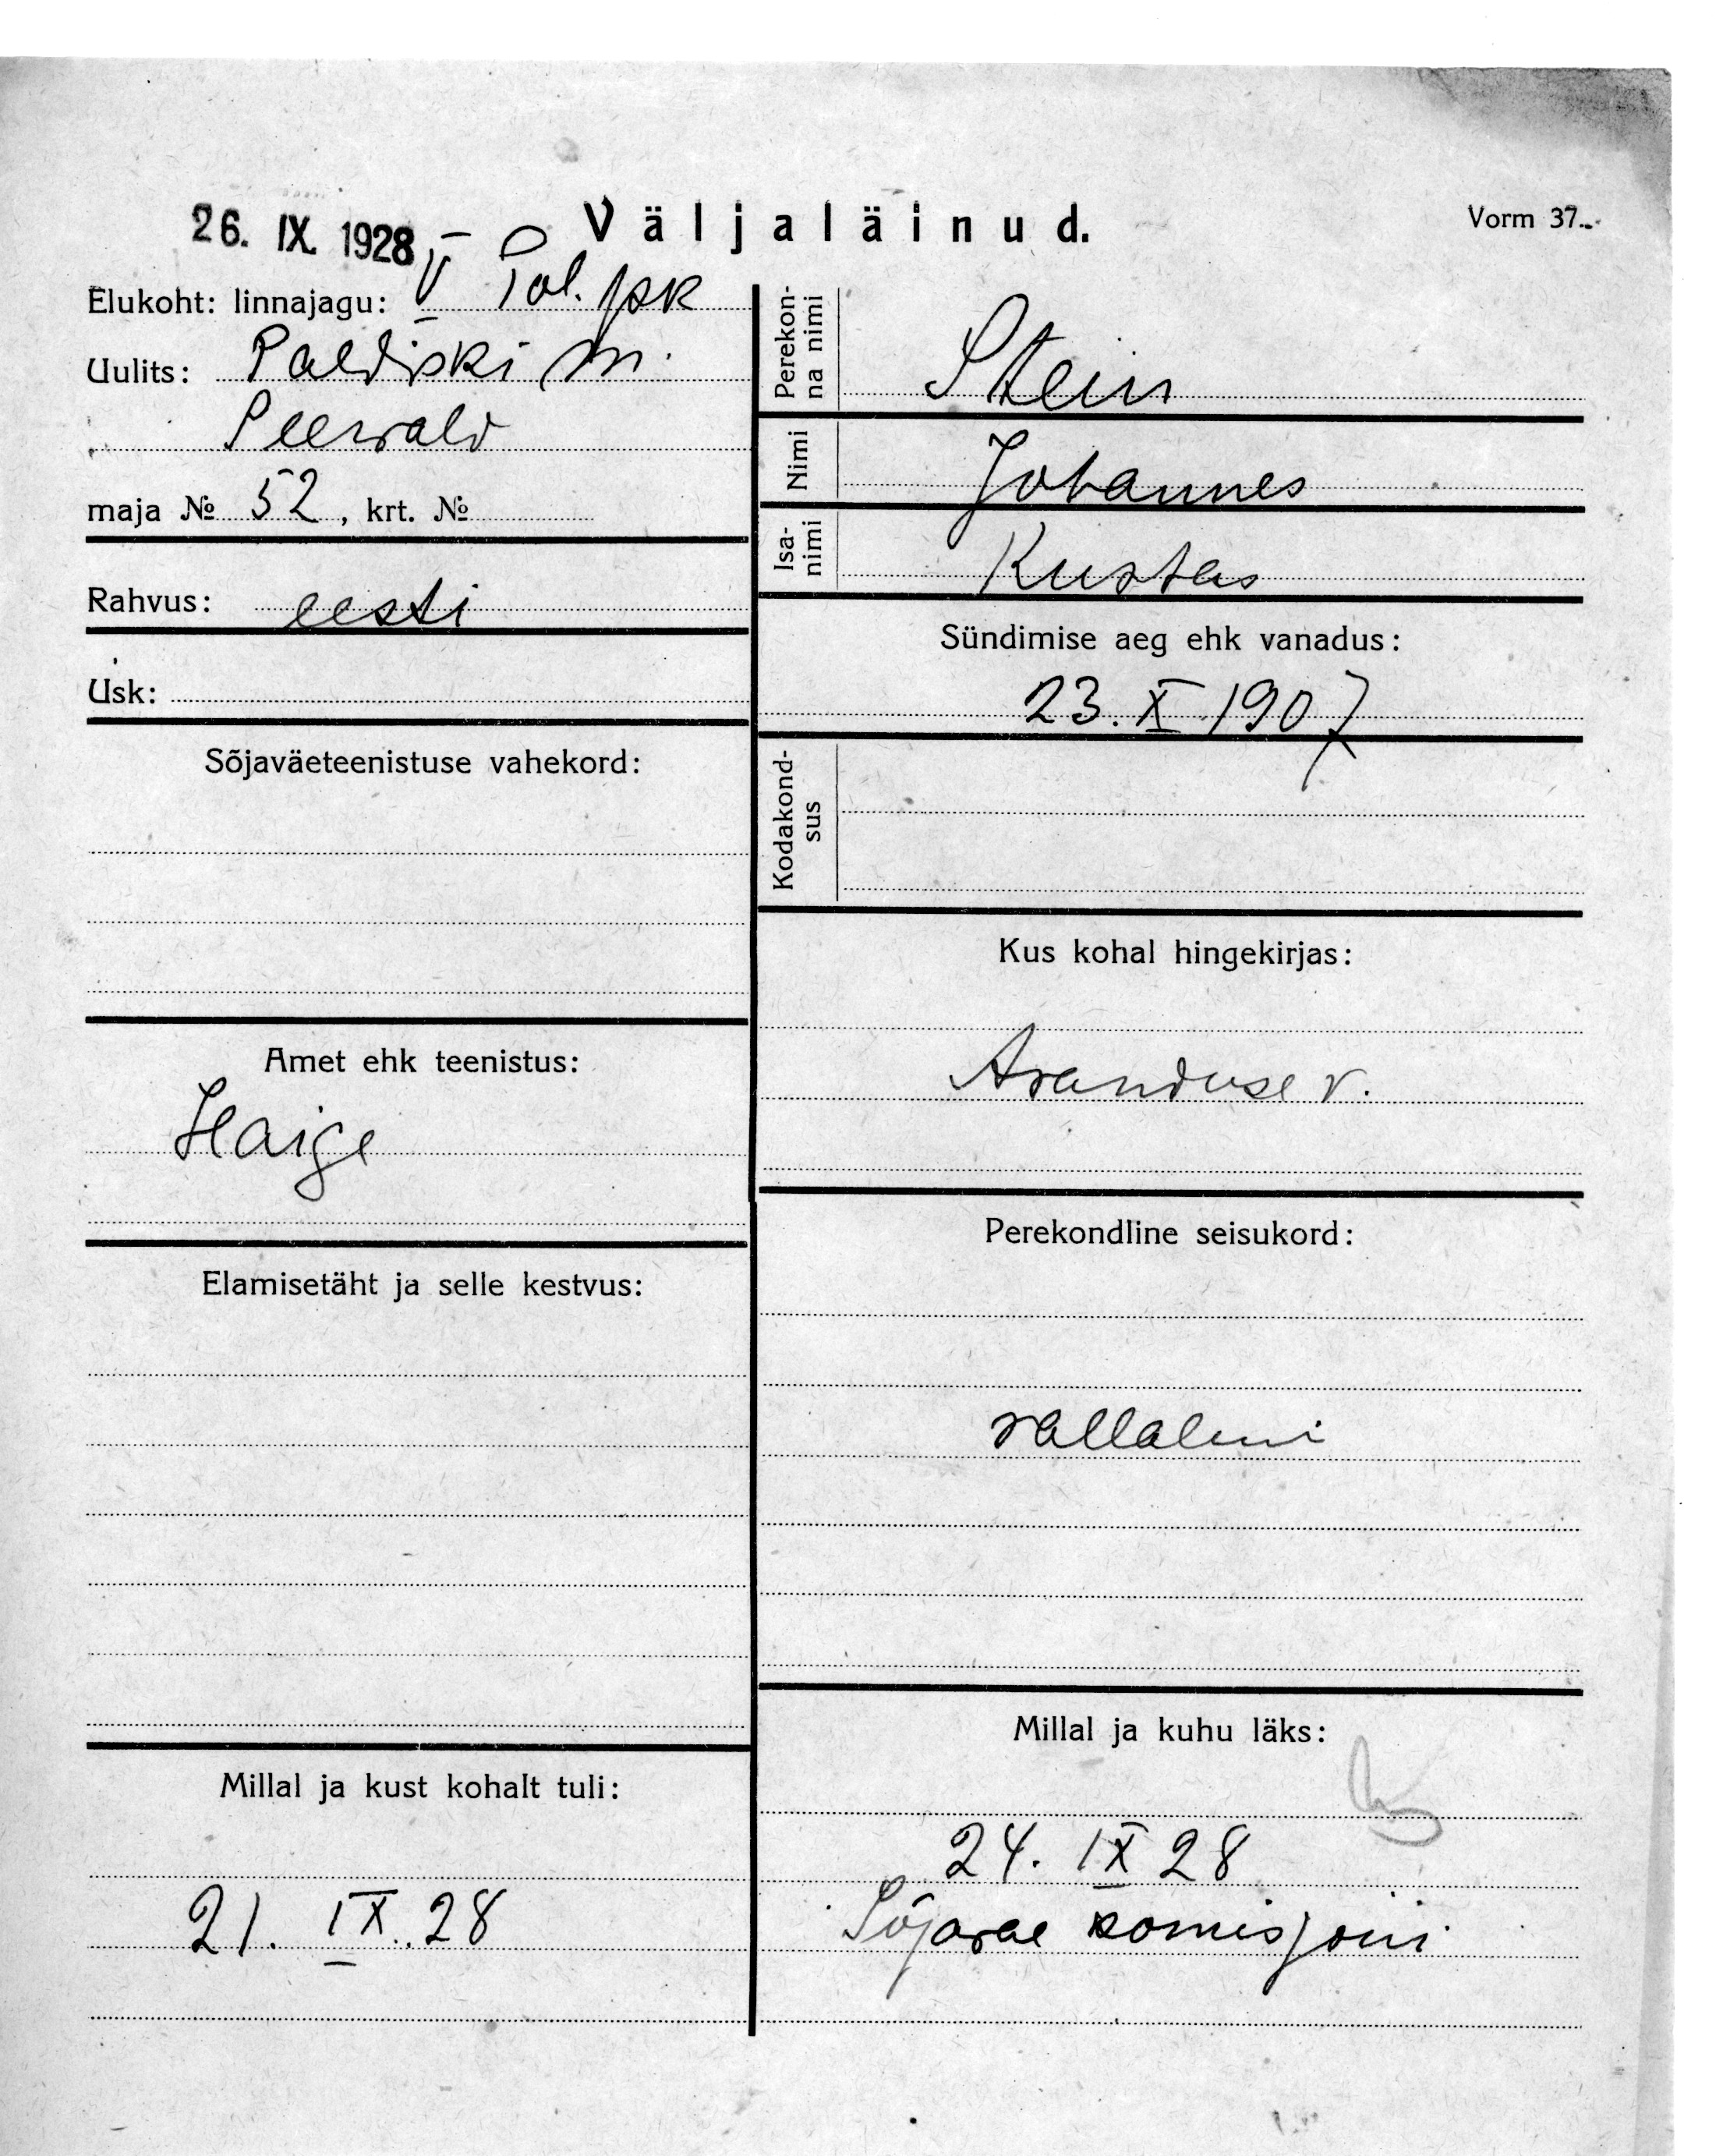 26. IX. 1928
Väljaläinud.
Vorm 37.
Elukoht: linnajagu: V Pol. jsk
Uulits: Paldiski m.
Seewald
maja № 52, krt. №
Rahvus: eesti
Usk:
Sõjaväeteenistuse vahekord:
Amet ehk teenistus:
Haige
Elamisetäht ja selle kestvus:
Millal ja kust kohalt tuli:
21. IX. 28
Perekon-
na nimi
Stein
Nimi
Johannes
Isa-
nimi
Kustas
Sündimise aeg ehk vanadus:
23. X 1907
Kodakond-
sus
Kus kohal hingekirjas:
Aranduse v.
Perekondline seisukord:
vallaline
Millal ja kuhu läks:
24. IX 28
Sõjavae komisjoni